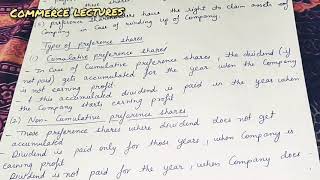 COMMERCE LECTURES
preference shares have the right to claim assets of
Company in Case of winding up of Company.
Types of preference shares
(1) Cumulative preference shares
- In Case of Cumulative preference shares, the dividend (if
not paid) gets accumulated for the year when the Company
is not earning profit
- & this accumulated dividend is paid in the year when
the Company starts earning profit
(2) Non-Cumulative preference shares
- Those preference shares where dividend does not get
accumulated
- Dividend is paid only for those years, when Company is
earning profit
Dividend is not paid for the year, when Company does